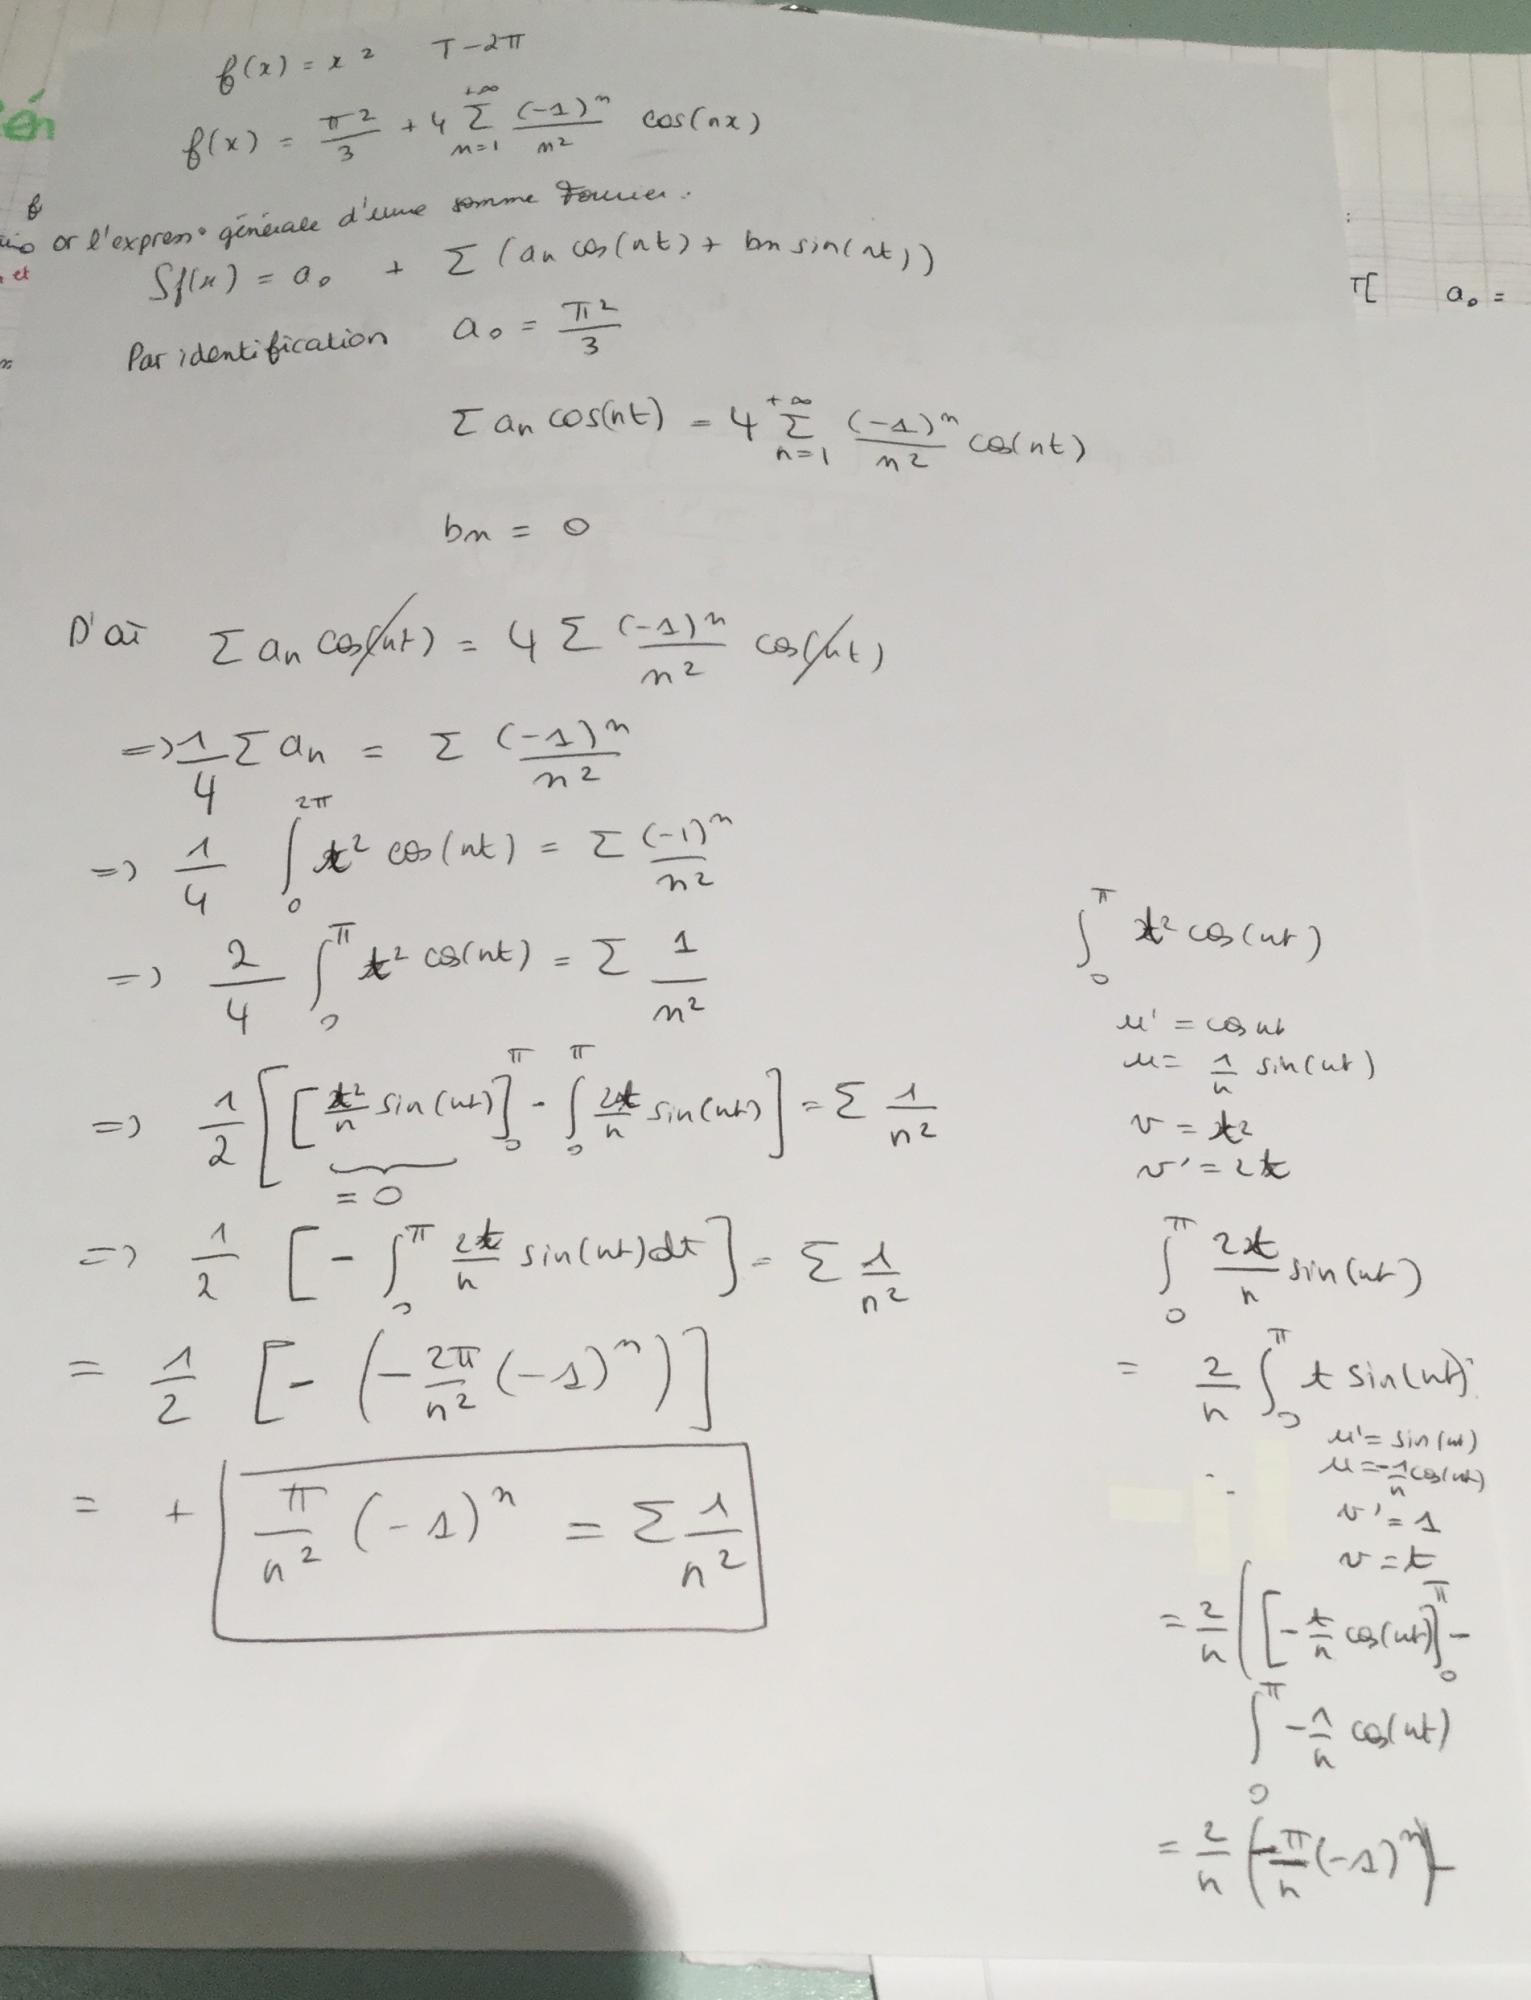 f(x) = x² T-2π
én
f(x) = π²/3 + 4 Σ_{n=1}^{+∞} (-1)ⁿ/n² cos(nx)
or l'express° générale d'une somme Fourier.
et
Sf(x) = a₀ + Σ (an cos(nt) + bn sin(nt))
π[ a₀ =
Par identification a₀ = π²/3
Σ an cos(nt) = 4 Σ_{n=1}^{+∞} (-1)ⁿ/n² cos(nt)
bn = 0
D'où Σ an cos(nt) = 4 Σ (-1)ⁿ/n² cos(nt)
=> 1/4 Σ an = Σ (-1)ⁿ/n²
=> 1/4 ∫₀^{2π} t² cos(nt) = Σ (-1)ⁿ/n²
=> 2/4 ∫₀^π t² cos(nt) = Σ 1/n²
=> 1/2 [ [t²/n sin(nt)]₀^π - ∫₀^π 2t/n sin(nt) ] = Σ 1/n²
= 0
=> 1/2 [ - ∫₀^π 2t/n sin(nt) dt ] = Σ 1/n²
= 1/2 [ - ( - 2π/n² (-1)ⁿ ) ]
= + π/n² (-1)ⁿ = Σ 1/n²
∫₀^π t² cos(nt)
u' = cos nt
u = 1/n sin(nt)
v = t²
v' = 2t
∫₀^π 2t/n sin(nt)
= 2/n ∫₀^π t sin(nt)
u' = sin(nt)
u = -1/n cos(nt)
v' = 1
v = t
= 2/n ( [ - t/n cos(nt) ]₀^π -
∫₀^π - 1/n cos(nt)
= 2/n ( - π/n (-1)ⁿ ) -